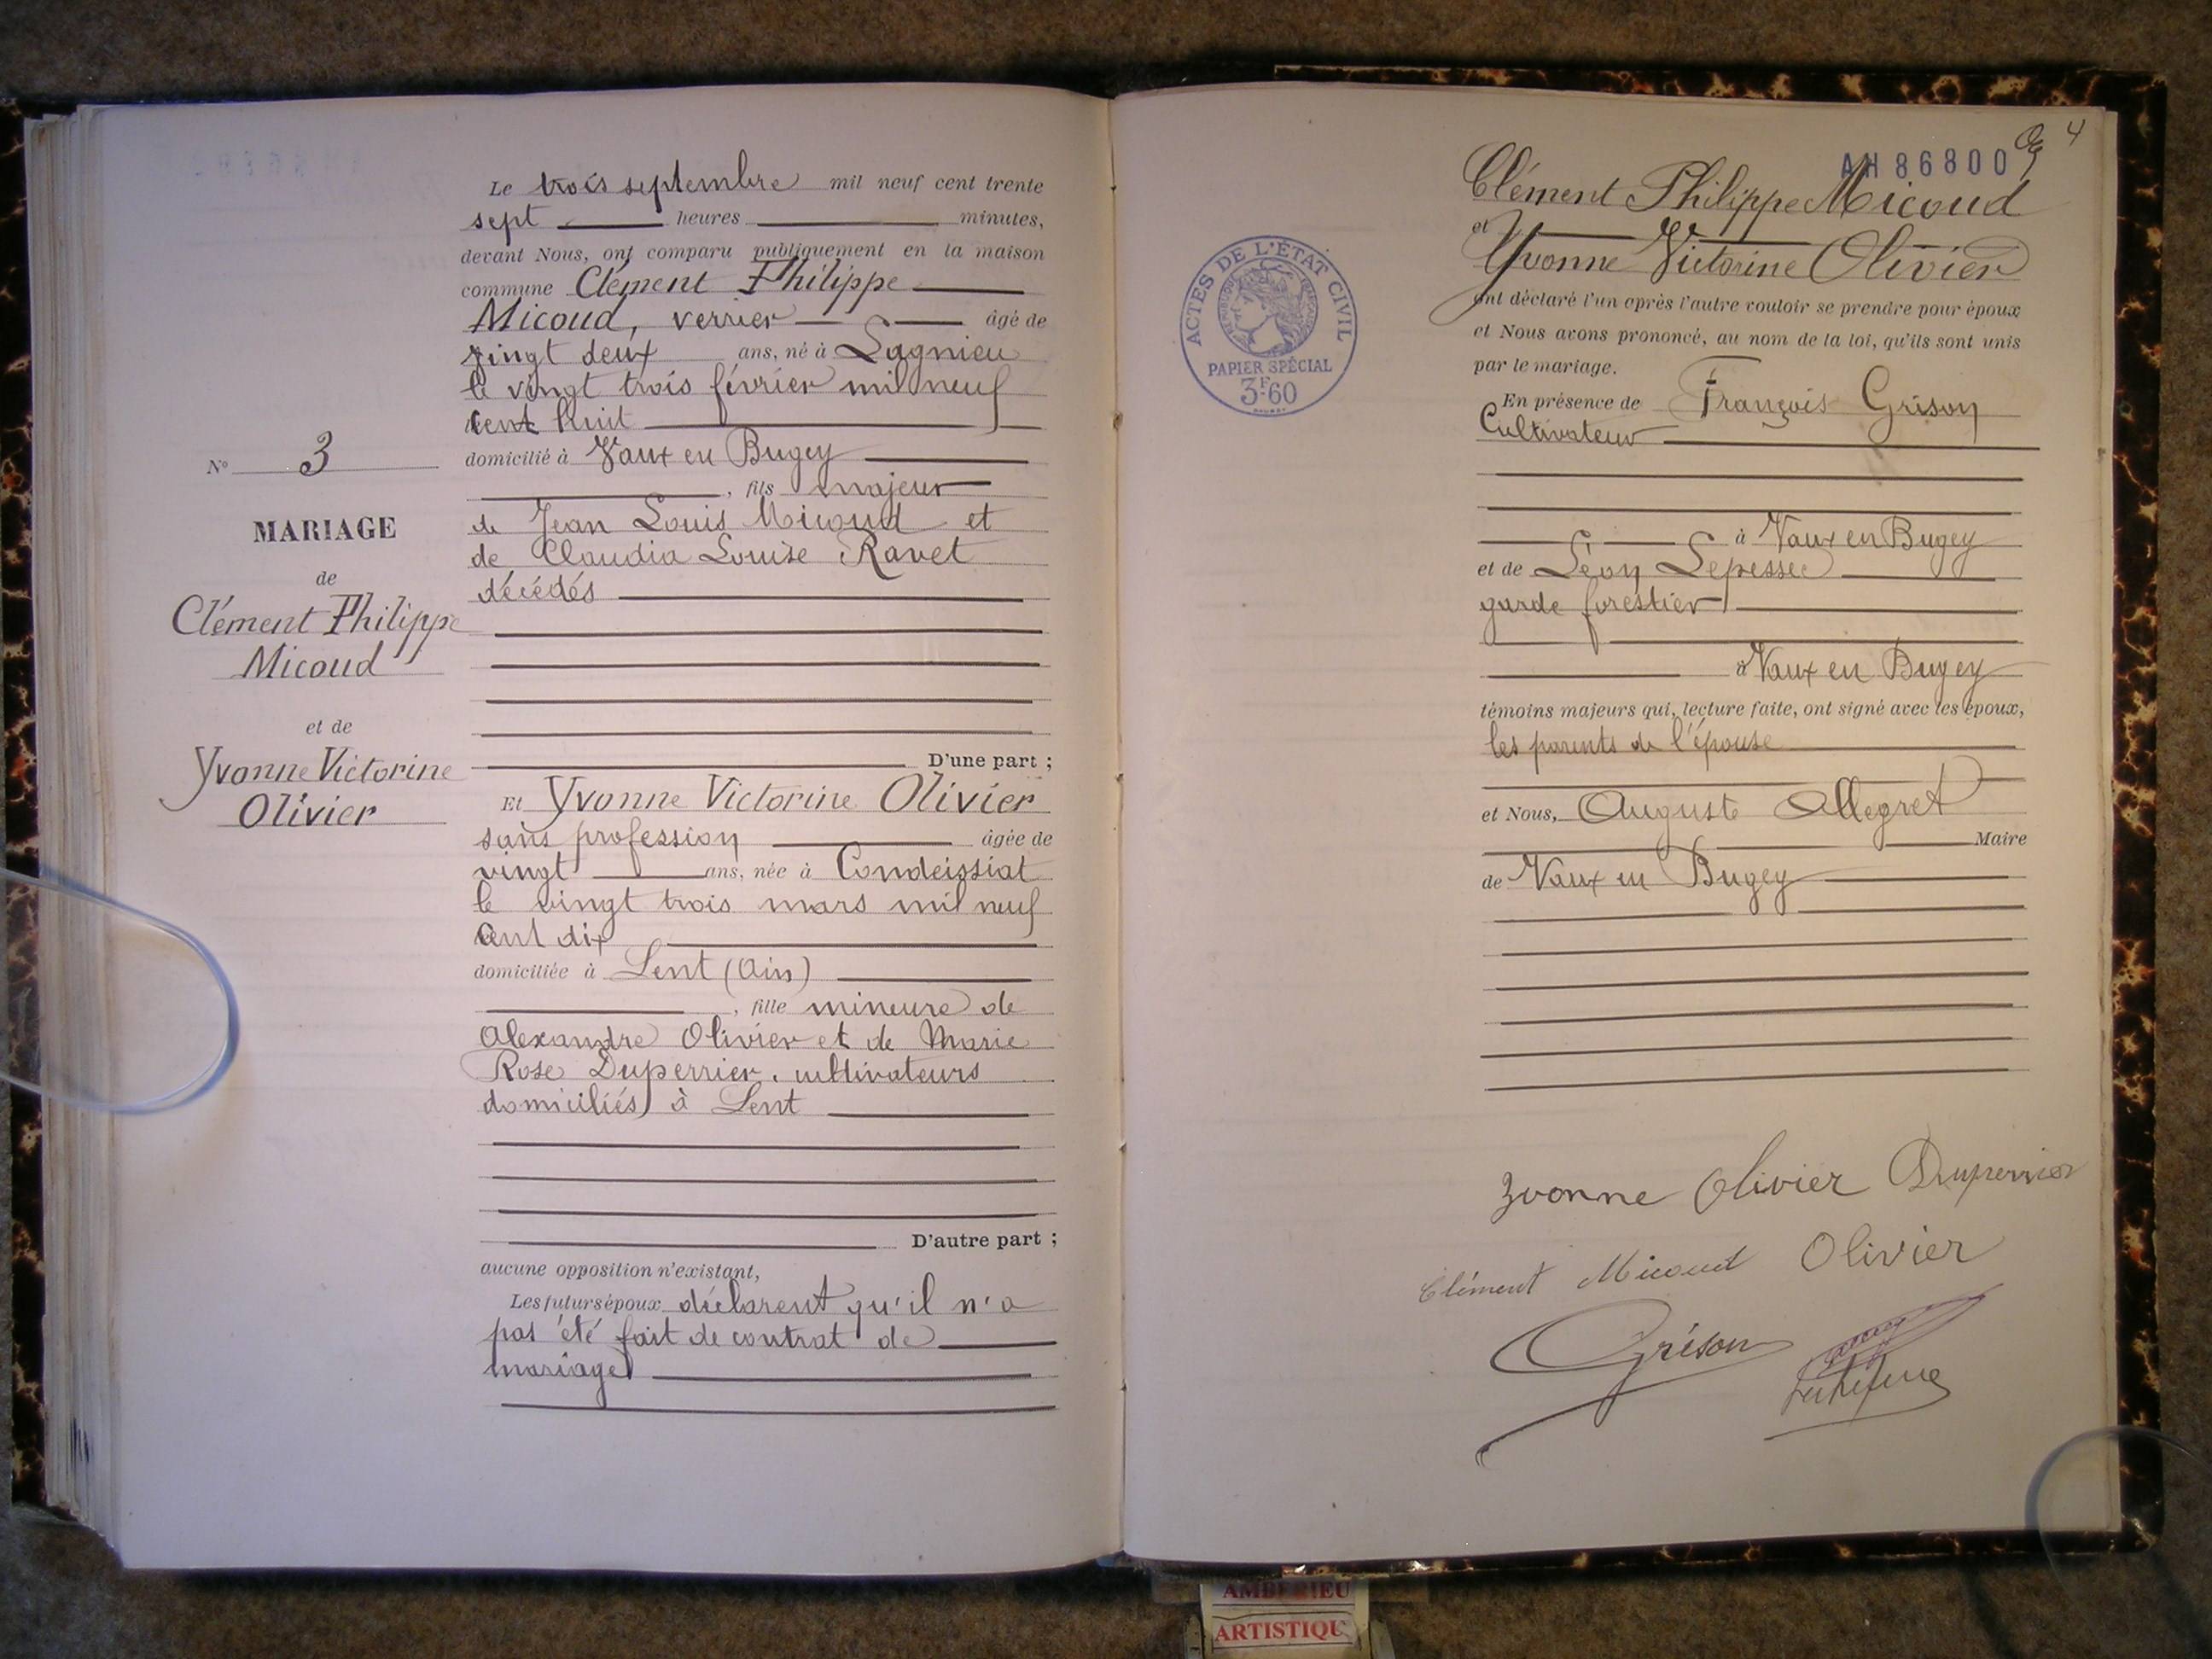 Le trois septembre mil neuf cent trente
sept heures minutes,
devant Nous, ont comparu publiquement en la maison
commune Clément Philippe
Micoud, verrier âgé de
vingt deux ans, né à Lagnieu
le vingt trois février mil neuf
cent huit
N° 3
domicilié à Vaux en Bugey
, fils majeur
MARIAGE
de
Clément Philippe
Micoud
et de
Yvonne Victorine
Olivier
de Jean Louis Micoud et
de Claudia Louise Ravet
décédés
D'une part ;
Et Yvonne Victorine Olivier
sans profession âgée de
vingt ans, née à Condeissiat
le vingt trois mars mil neuf
cent dix
domiciliée à Lent (Ain)
, fille mineure de
Alexandre Olivier et de Marie
Rose Duperrier, cultivateurs
domiciliés à Lent
D'autre part ;
aucune opposition n'existant,
Les futurs époux déclarent qu'il n'a
pas été fait de contrat de
mariage
4
AH 86800
Clément Philippe Micoud
et
Yvonne Victorine Olivier
ont déclaré l'un après l'autre vouloir se prendre pour époux
et Nous avons prononcé, au nom de la loi, qu'ils sont unis
par le mariage.
ACTES DE L'ÉTAT CIVIL
PAPIER SPÉCIAL
3F.60
En présence de François Grison
Cultivateur
à Vaux en Bugey
et de Léon Lepesse
garde forestier
à Vaux en Bugey
témoins majeurs qui, lecture faite, ont signé avec les époux,
les parents de l'épouse
et Nous, Auguste Allegret
Maire
de Vaux en Bugey
Yvonne Olivier Duperrier
Clément Micoud Olivier
Grison
AMBERIEU
ARTISTIQU